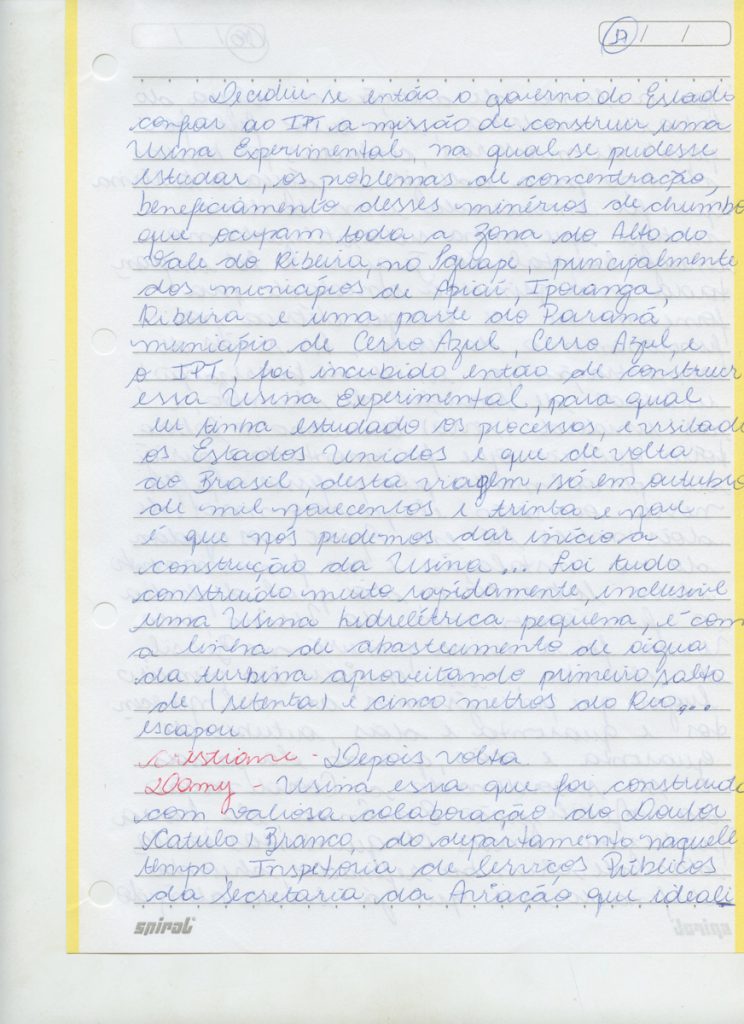 37 / /
Decidiu-se então o governo do Estado
confiar ao IPT a missão de construir uma
Usina Experimental, na qual se pudesse
estudar, os problemas de concentração,
beneficiamento desses minérios de chumbo
que ocupam toda a zona do Alto do
Vale do Ribeira, no Iguape, principalmente
dos municípios de Apiaí, Iporanga,
Ribeira e uma parte do Paraná
município de Cerro Azul, Cerro Azul, e
o IPT, foi incubido então de construir
essa Usina Experimental, para qual
eu tinha estudado os processos, e visitado
os Estados Unidos e que de volta
ao Brasil, desta viagem, só em outubro
de mil novecentos e trinta e nove
é que nós pudemos dar início a
construção da Usina... Foi tudo
construído muito rapidamente, inclusive
uma Usina hidrelétrica pequena, é com
a linha de abastecimento de água
da turbina aproveitando primeiro salto
de (setenta) e cinco metros do Rio...
escapou
Cristiane - Depois volta
Damy - Usina essa que foi construida
com valiosa colaboração do Doutor
(Catulo) Branco, do departamento naquele
tempo, Inspetoria de Serviços Públicos
da Secretaria da Aviação que ideali
spiral